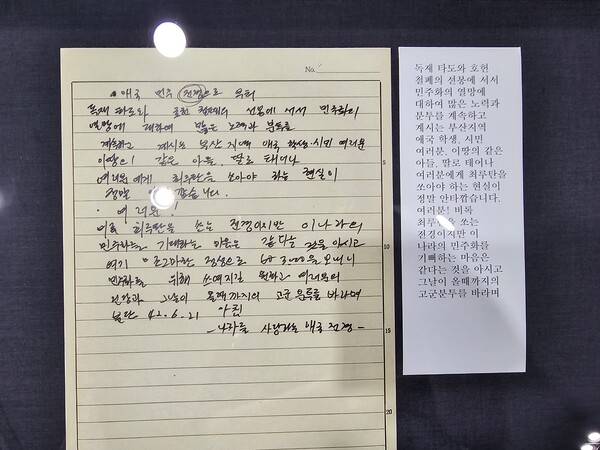 No.
애국 민주 전경으로 부터
독재 타도와 호헌 철폐의 선봉에 서서 민주화의
열망에 대하여 많은 노력과 분투를
계속하고 계시는 부산지역 애국 학생, 시민 여러분
이땅의 같은 아들, 딸로 태어나
여러분에게 최루탄을 쏘아야 하는 현실이
정말 안타깝습니다.
여러분!
비록 최루탄을 쏘는 전경이지만 이나라의
민주화를 기뻐하는 마음은 같다는 것을 아시고
여기 조그마한 정성으로 보내니
민주화를 위해 쓰여지길 원하고 여러분의
건강과 그날이 올때까지의 고군분투를 바라며
불단 42.6.21 아침
-나라를 사랑하는 애국 전경-
5
10
15
20
독재 타도와 호헌
철폐의 선봉에 서서
민주화의 열망에
대하여 많은 노력과
분투를 계속하고
계시는 부산지역
애국 학생, 시민
여러분, 이땅의 같은
아들, 딸로 태어나
여러분에게 최루탄을
쏘아야 하는 현실이
정말 안타깝습니다.
여러분! 비록
최루탄을 쏘는
전경이지만 이
나라의 민주화를
기뻐하는 마음은
같다는 것을 아시고
그날이 올때까지의
고군분투를 바라며